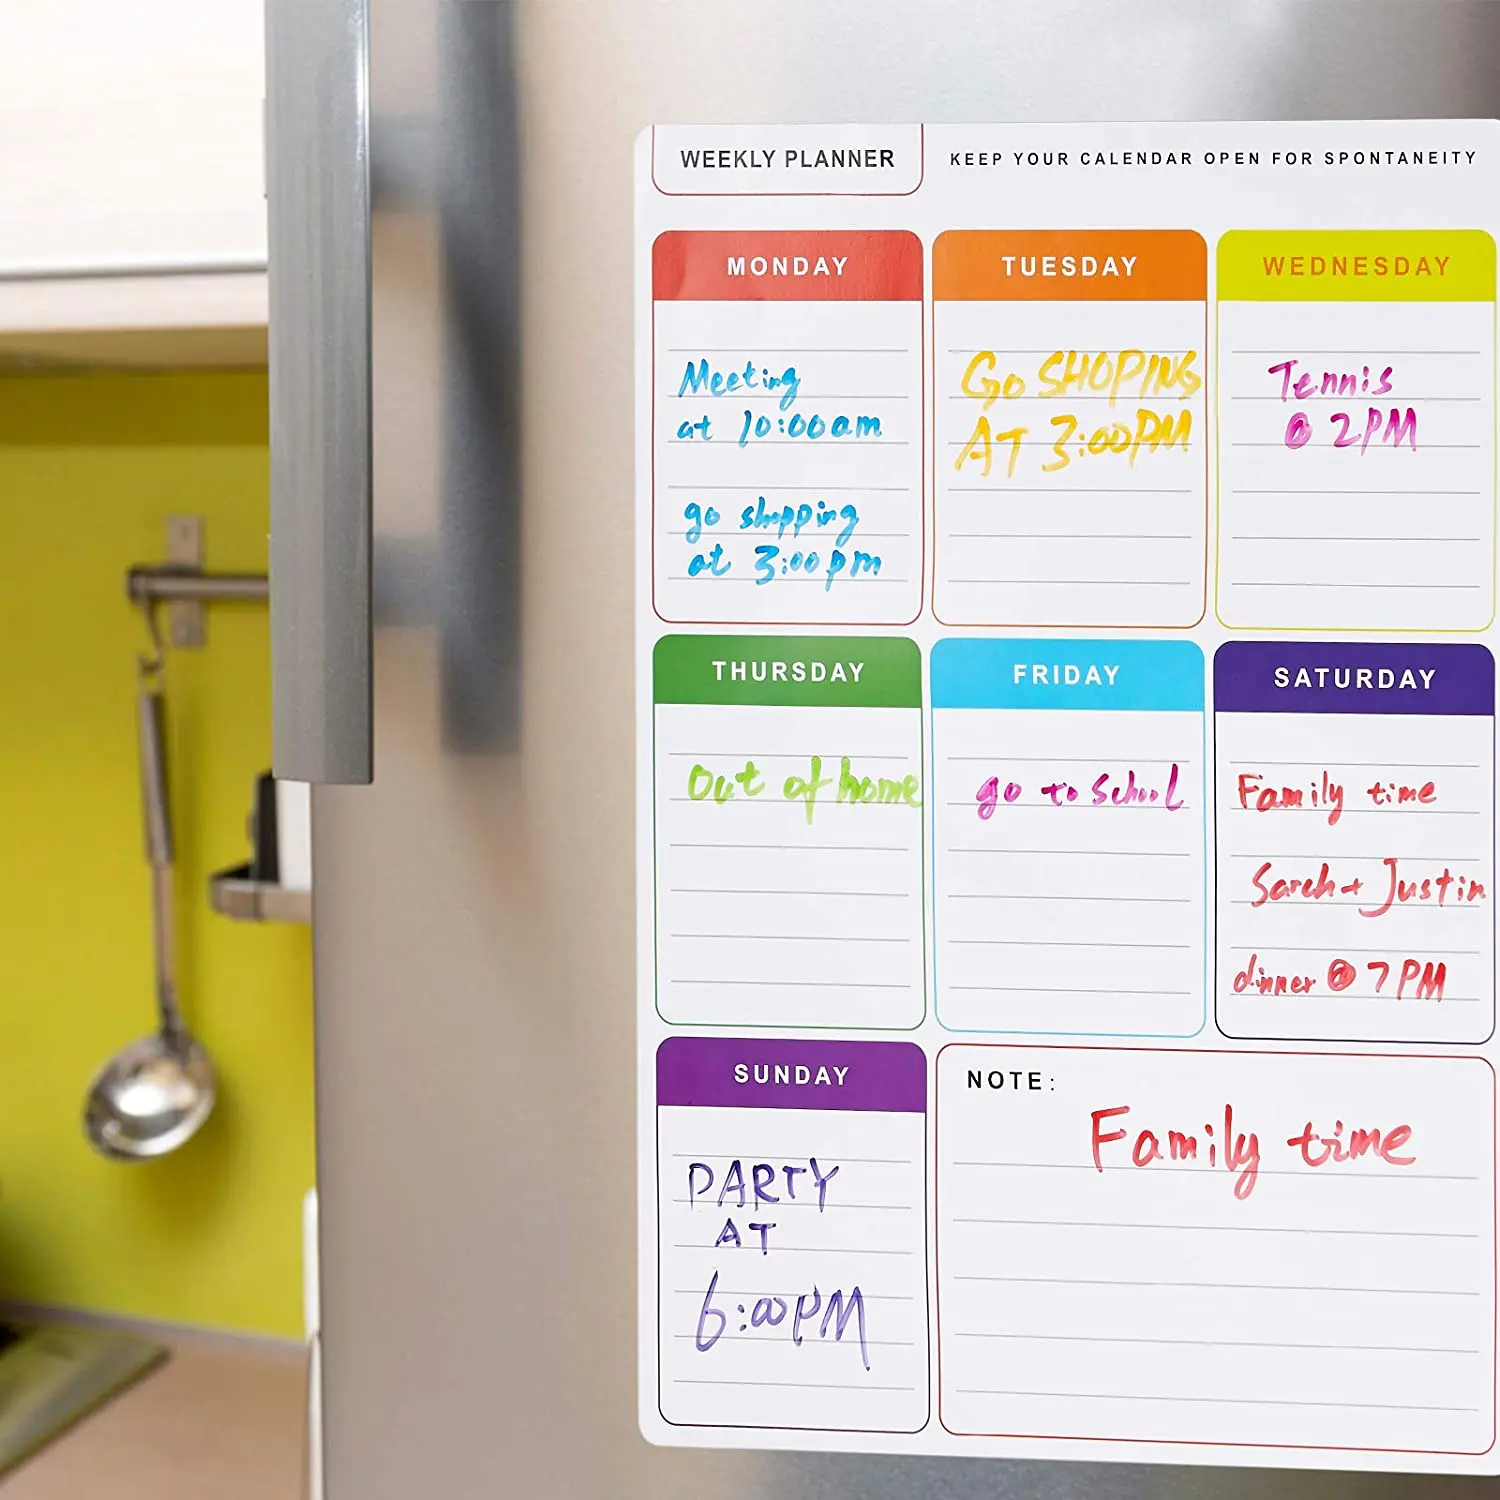 WEEKLY PLANNER
KEEP YOUR CALENDAR OPEN FOR SPONTANEITY
MONDAY
Meeting
at 10:00am
go shopping
at 3:00pm
TUESDAY
GO SHOPING
AT 3:00PM
WEDNESDAY
Tennis
@ 2PM
THURSDAY
Out of home
FRIDAY
go to School
SATURDAY
Family time
Sareh + Justin
dinner @ 7PM
SUNDAY
PARTY
AT
6:00PM
NOTE:
Family time